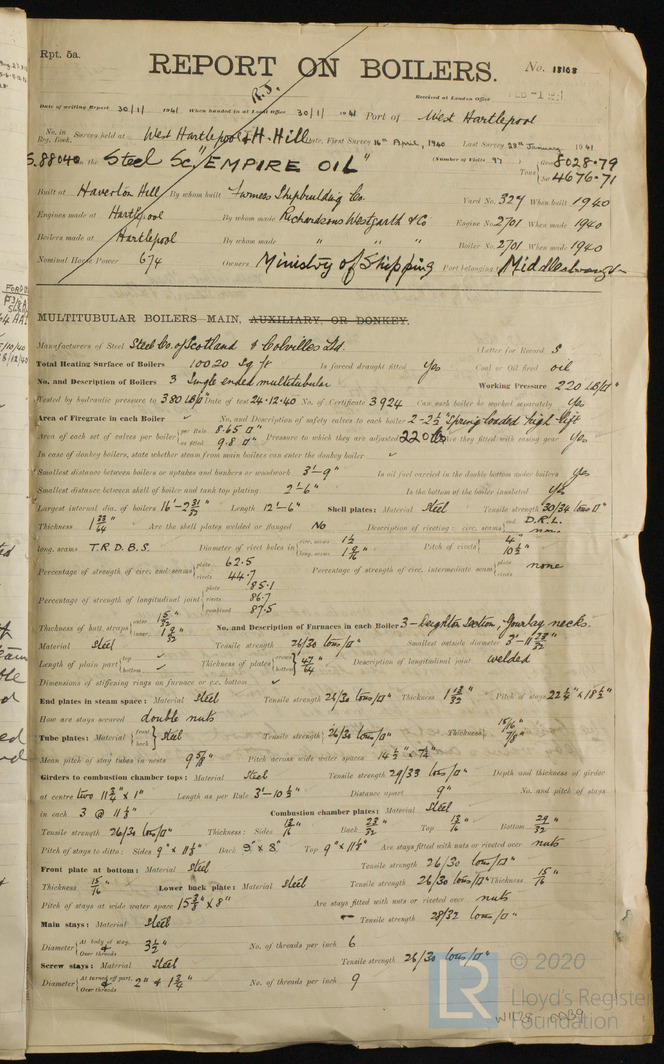 Rpt. 5a.
REPORT ON BOILERS.
No. 18108
Received at London Office
Date of writing Report 30/1/ 1941 When handed in at Local Office 30/1/ 1941 Port of West Hartlepool
No. in Reg. Book. Survey held at West Hartlepool & H. Hill Date, First Survey 16th April, 1940 Last Survey 28th January 1941
88040 on the Steel Sc. "EMPIRE OIL" (Number of Visits 97) Tons Gross 8028.79 Net 4676.71
Built at Haverton Hill By whom built Furness Shipbuilding Co. Yard No. 327 When built 1940
Engines made at Hartlepool By whom made Richardsons Westgarth & Co Engine No. 2701 When made 1940
Boilers made at Hartlepool By whom made " " " Boiler No. 2701 When made 1940
Nominal Horse Power 674 Owners Ministry of Shipping Port belonging to Middlesbrough
MULTITUBULAR BOILERS MAIN, AUXILIARY, OR DONKEY.
Manufacturers of Steel Steel Co. of Scotland & Colvilles Ltd. (Letter for Record S
Total Heating Surface of Boilers 10020 Sq ft Is forced draught fitted Yes Coal or Oil fired oil
No. and Description of Boilers 3 Single ended multitubular Working Pressure 220 LB/□"
Tested by hydraulic pressure to 380 LB/□" Date of test 24.12.40 No. of Certificate 3924 Can each boiler be worked separately yes
Area of Firegrate in each Boiler ✓ No. and Description of safety valves to each boiler 2-2½" Spring loaded high lift
Area of each set of valves per boiler per Rule 8.65 □" as fitted 9.8 □" Pressure to which they are adjusted 220 lbs Are they fitted with easing gear yes
In case of donkey boilers, state whether steam from main boilers can enter the donkey boiler ✓
Smallest distance between boilers or uptakes and bunkers or woodwork 3'-9" Is oil fuel carried in the double bottom under boilers yes
Smallest distance between shell of boiler and tank top plating 2'-6" Is the bottom of the boiler insulated yes
Largest internal dia. of boilers 16'-2 31/32" Length 12'-6" Shell plates: Material Steel Tensile strength 30/34 tons □"
Thickness 1 33/64" Are the shell plates welded or flanged No Description of riveting: circ. seams end D.R.L.
long. seams T.R.D.B.S. Diameter of rivet holes in circ. seams 1½ long. seams 1 9/16" Pitch of rivets 4" 10½"
Percentage of strength of circ. end seams plate 62.5 rivets 44.7 Percentage of strength of circ. intermediate seam plate rivets none
Percentage of strength of longitudinal joint plate 85.1 rivets 86.7 combined 87.5
Thickness of butt straps outer 1 5/32" inner 1 9/32" No. and Description of Furnaces in each Boiler 3 - Deighton Section, Gourlay necks.
Material Steel Tensile strength 26/30 tons/□" Smallest outside diameter 3'-11 23/32"
Length of plain part top ✓ bottom ✓ Thickness of plates crown bottom 47/64" Description of longitudinal joint welded
Dimensions of stiffening rings on furnace or c.c. bottom ✓
End plates in steam space: Material Steel Tensile strength 26/30 tons/□" Thickness 1 13/32" Pitch of stays 22¼" x 18½"
How are stays secured double nuts
Tube plates: Material front back Steel Tensile strength 26/30 tons/□" Thickness 15/16" 7/8"
Mean pitch of stay tubes in nests 9 5/8" Pitch across wide water spaces 14½" x 7¾"
Girders to combustion chamber tops: Material Steel Tensile strength 29/33 tons/□" Depth and thickness of girder
at centre two 11¾" x 1" Length as per Rule 3'-10½" Distance apart 9" No. and pitch of stays
in each 3 @ 11⅛" Combustion chamber plates: Material Steel
Tensile strength 26/30 tons/□" Thickness: Sides 13/16" Back 23/32" Top 13/16" Bottom 29/32"
Pitch of stays to ditto: Sides 9" x 11⅛" Back 9" x 8" Top 9" x 11⅛" Are stays fitted with nuts or riveted over nuts
Front plate at bottom: Material Steel Tensile strength 26/30 tons/□"
Thickness 15/16" Lower back plate: Material Steel Tensile strength 26/30 tons/□" Thickness 15/16"
Pitch of stays at wide water space 15⅜" x 8" Are stays fitted with nuts or riveted over nuts
Main stays: Material Steel Tensile strength 28/32 tons/□"
Diameter At body of stay, & Over threads 3½" No. of threads per inch 6
Screw stays: Material Steel Tensile strength 26/30 tons/□"
Diameter At turned off part, & Over threads 2" & 1¾" No. of threads per inch 9
LR © 2020
Lloyd's Register
Foundation
W1178-0089